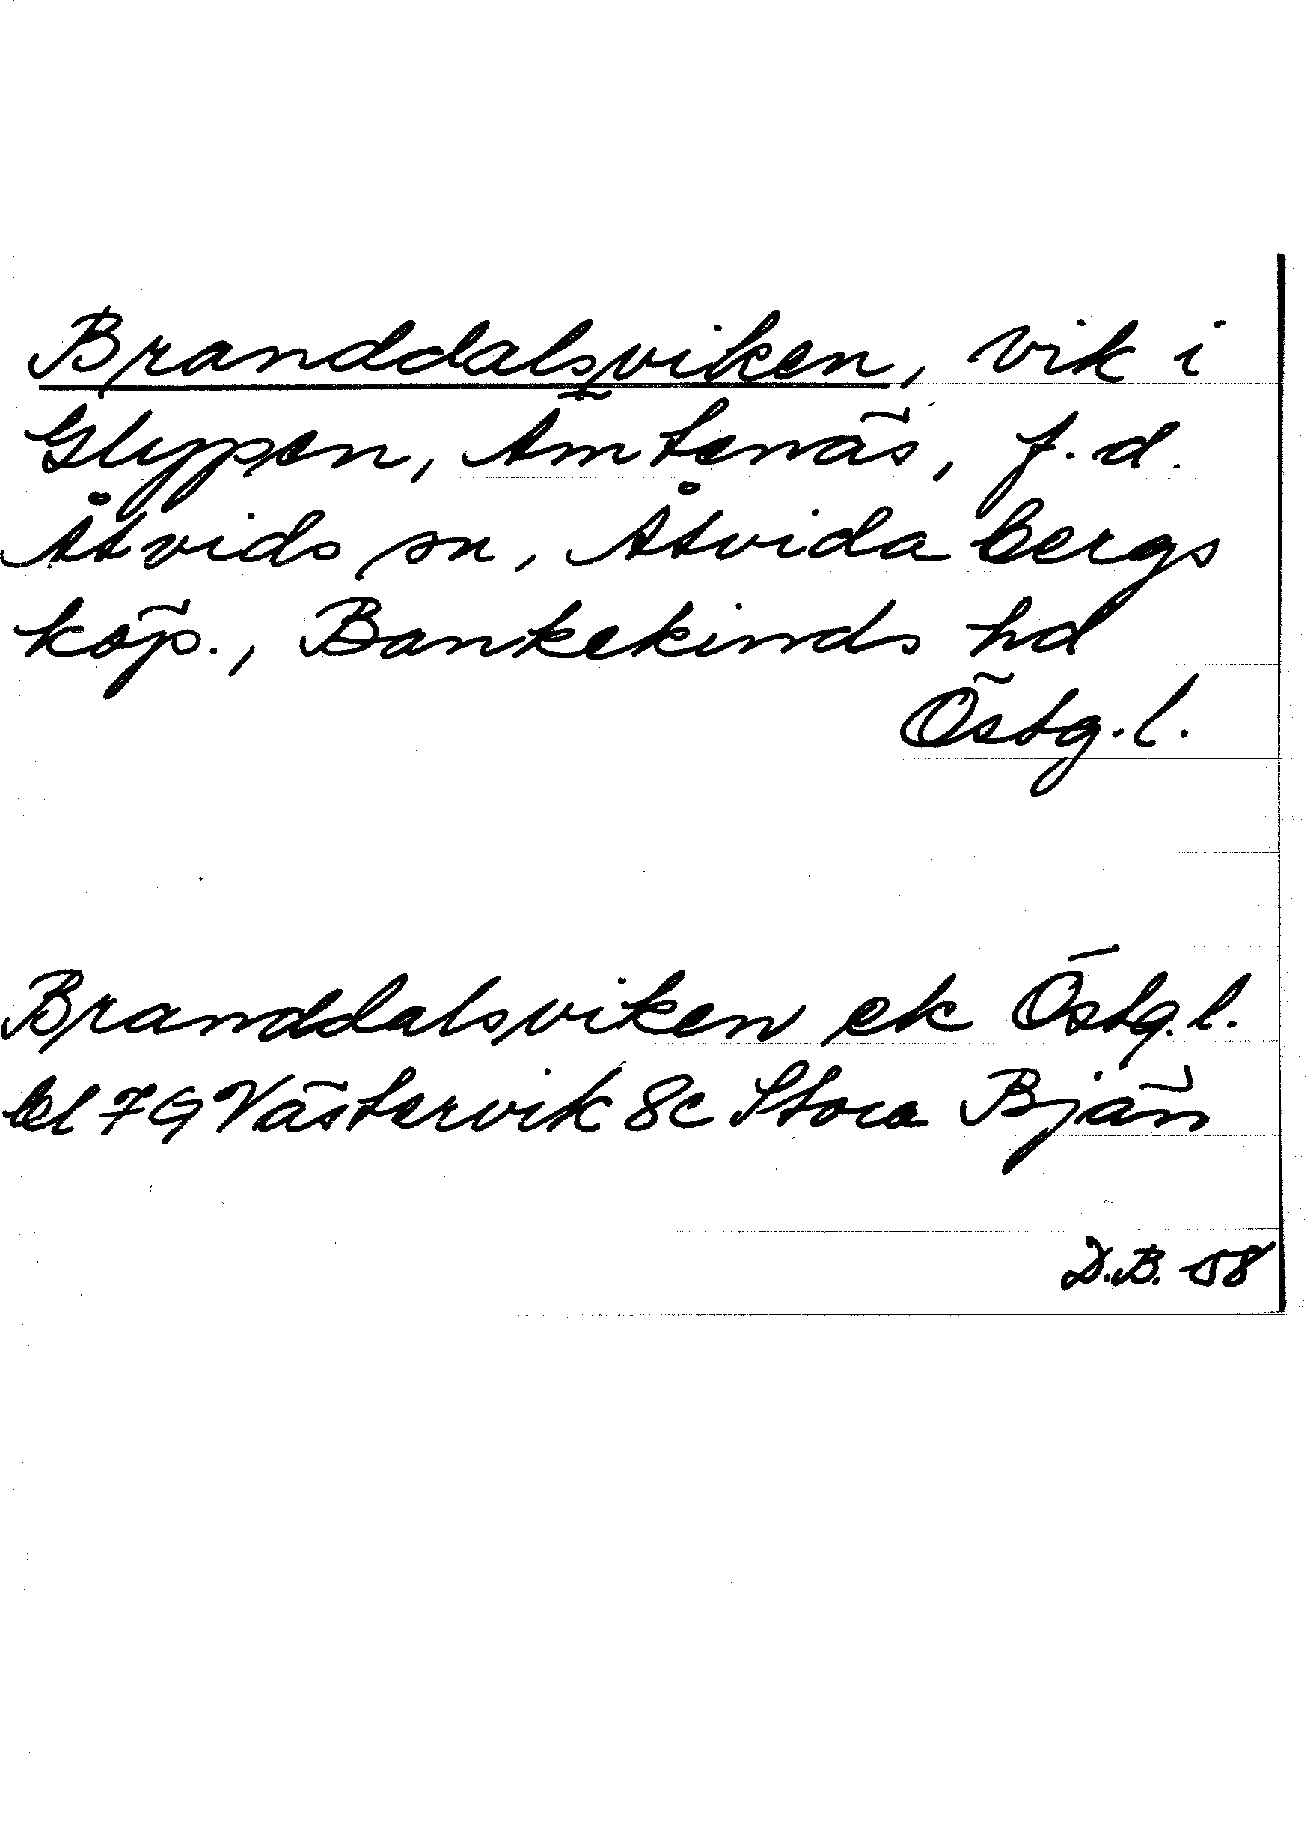 Branddalsviken, vik i
Glyppen, Ämtenäs, f.d.
Åtvids sn, Åtvidabergs
köp., Bankekinds hd
Östg.l.
Branddalsviken ek Östg.l.
bl 7G Västervik 8c Stora Bjän
D.B. 58